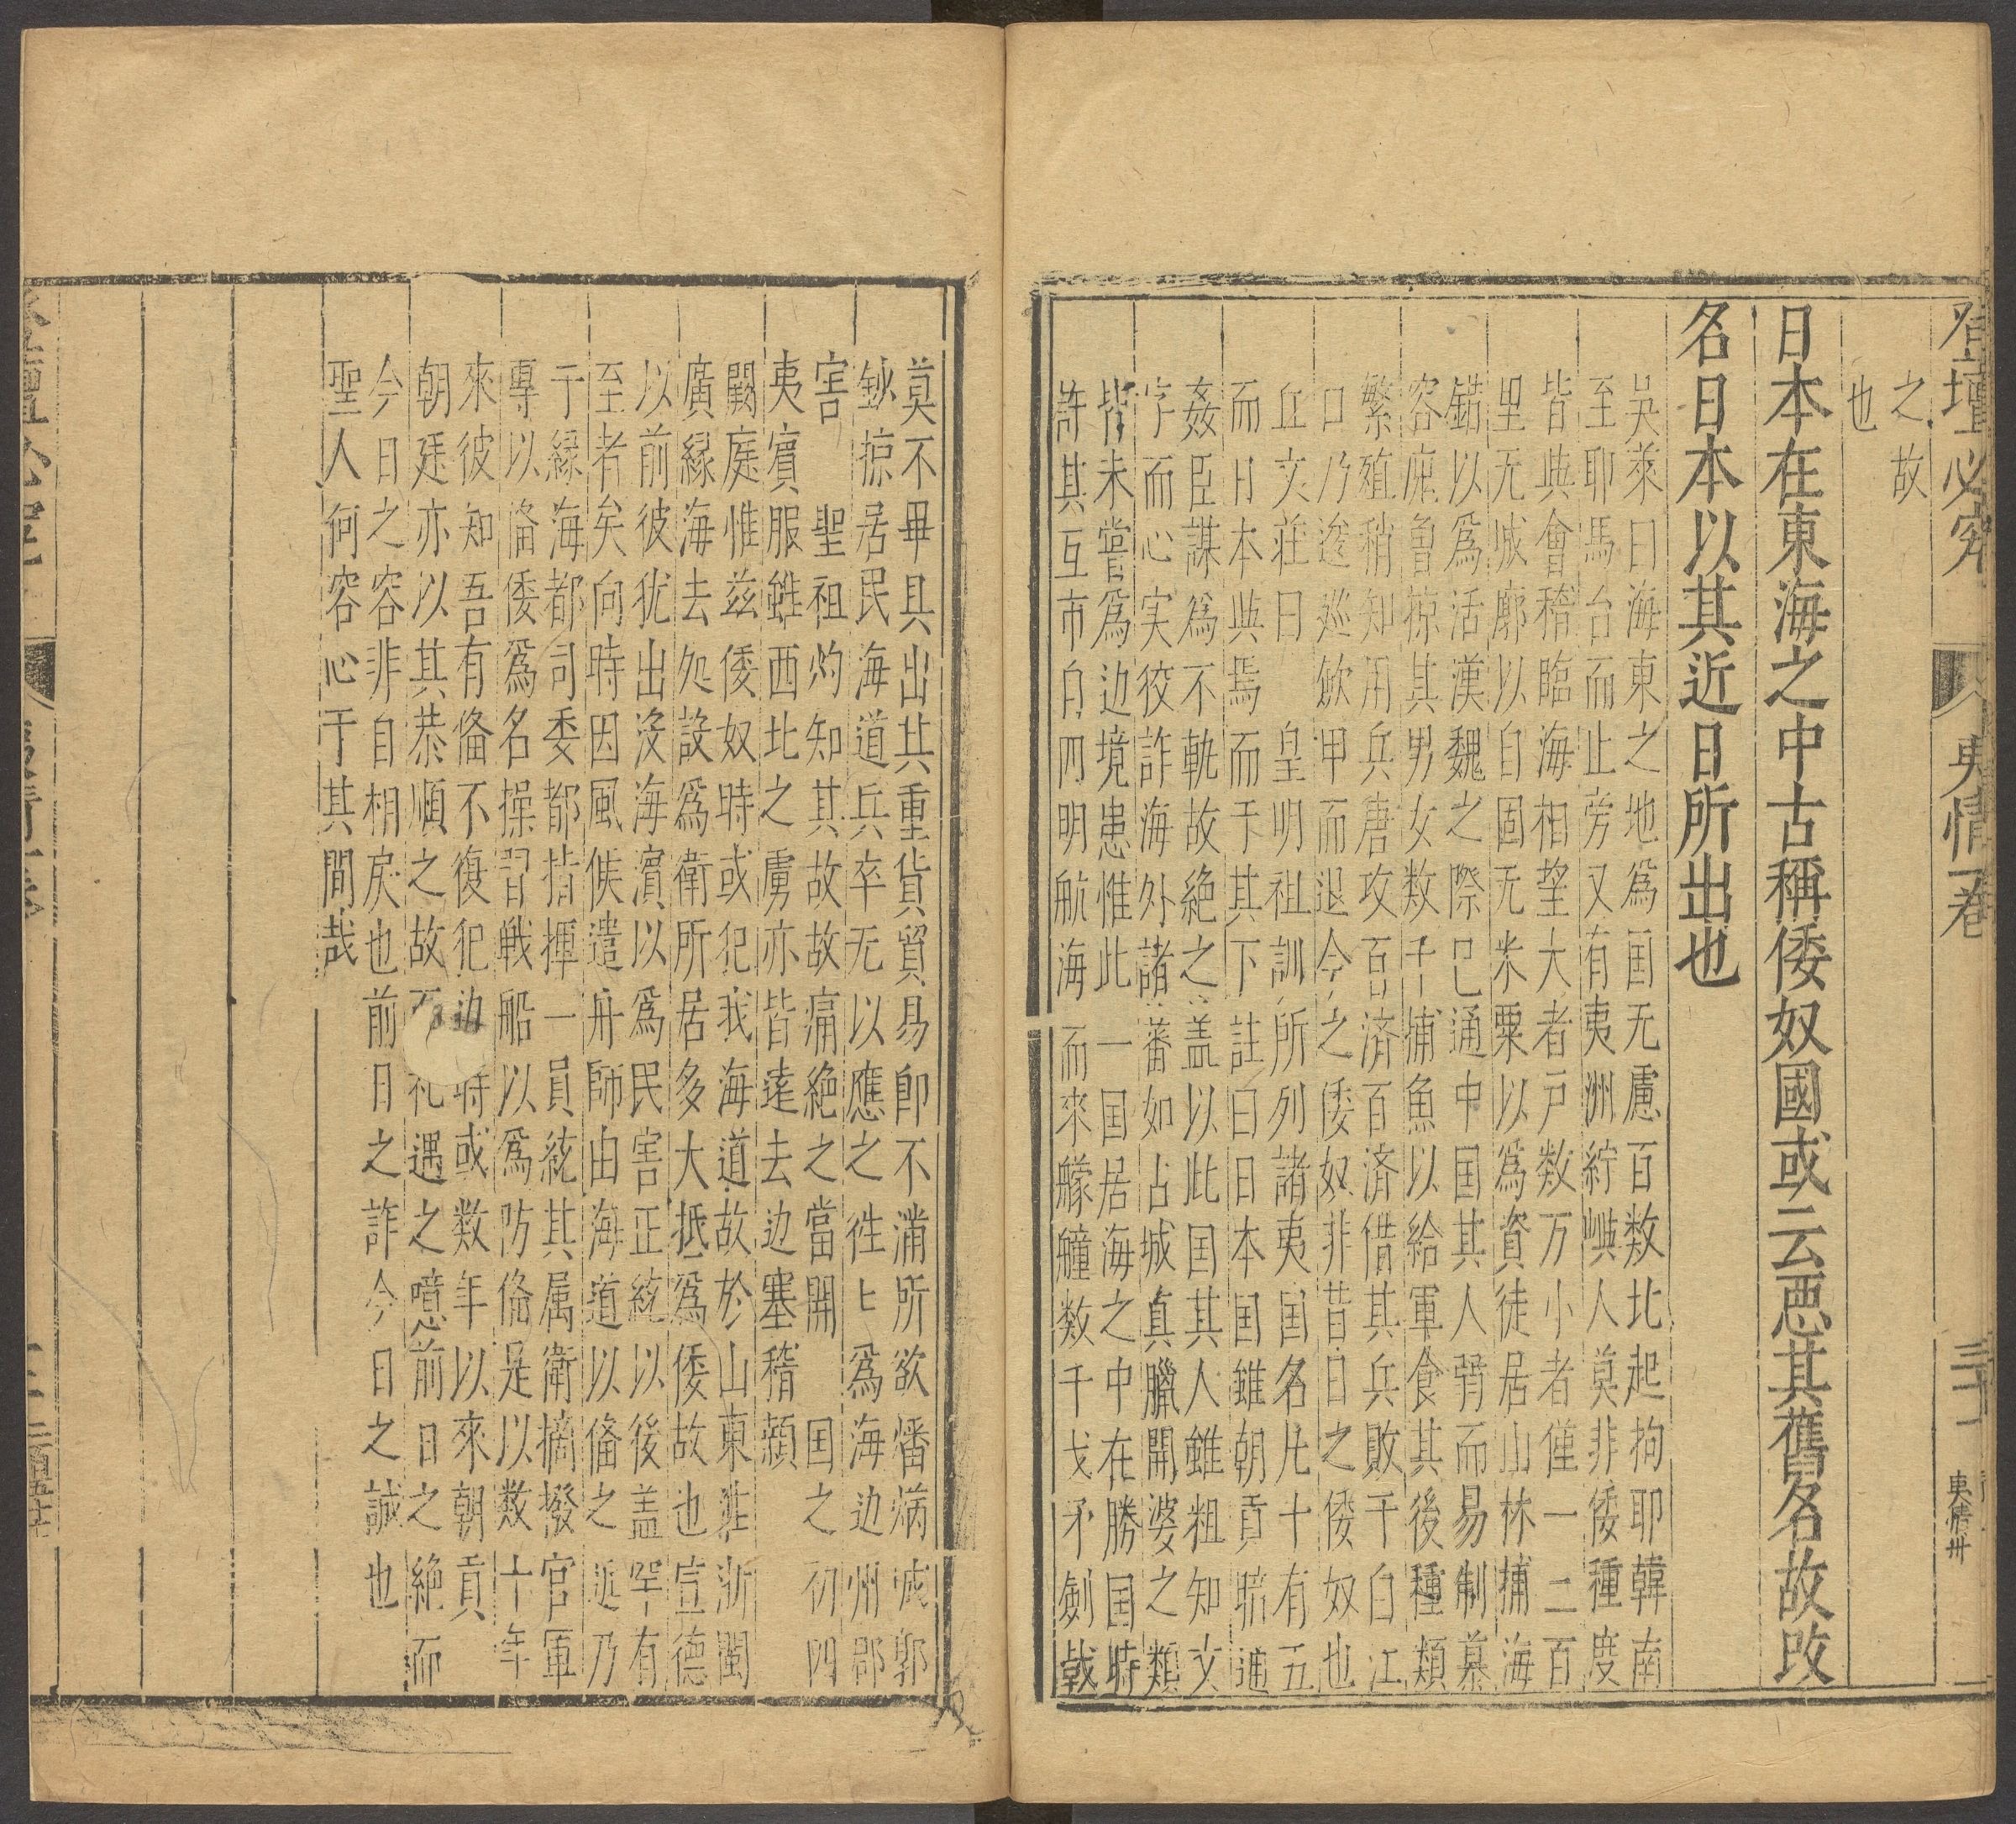 登壇必究
夷情一卷
三十一
夷情卅
之故
也
日本在東海之中古稱倭奴國或云惡其舊名故改
名日本以其近日所出也
吳萊曰海東之地爲国无慮百数北起拘耶韓南
至耶馬台而止旁又有夷洲紵嶼人莫非倭種度
皆與會稽臨海相望大者戸数万小者僅一二百
里无城廓以自固无米粟以爲資徒居山林捕海
錯以爲活漢魏之際已通中国其人弱而易制慕
容廆曾掠其男女数千捕魚以給軍食其後種類
繁殖稍知用兵唐攻百済百済借其兵敗于白江
口乃逡巡斂甲而退今之倭奴非昔日之倭奴也
丘文莊曰　皇明祖訓所列諸夷国名凢十有五
而日本與焉而于其下註曰日本国雖朝貢暗通
姦臣謀爲不軌故絶之盖以此国其人雖粗知文
字而心実狡詐海外諸蕃如占城真臘開婆之類
皆未嘗爲边境患惟此一国居海之中在勝国時
許其互市自四明航海而來艨艟数千戈矛劍戟
莫不畢具出其重貨貿易卽不滿所欲燔焫城郭
鈔掠居民海道兵卒无以應之徃匕爲海边州郡
害　聖祖灼知其故故痛絶之當開　国之初四
夷賓服雖西北之虜亦皆逺去边塞稽顙
闕庭惟兹倭奴時或犯我海道故於山東淮浙閩
廣縁海去処設爲衛所居多大抵爲倭故也宣德
以前彼犹出没海濵以爲民害正統以後盖罕有
至者矣向時因風候遣舟師由海道以俻之近乃
于縁海都司委都指揮一員統其属衛摘撥官軍
專以俻倭爲名操習戦船以爲防俻是以数十年
來彼知吾有俻不復犯边時或数年以來朝貢
朝廷亦以其恭順之故而礼遇之噫前日之絶而
今日之容非自相戻也前日之詐今日之誠也
聖人何容心于其間哉